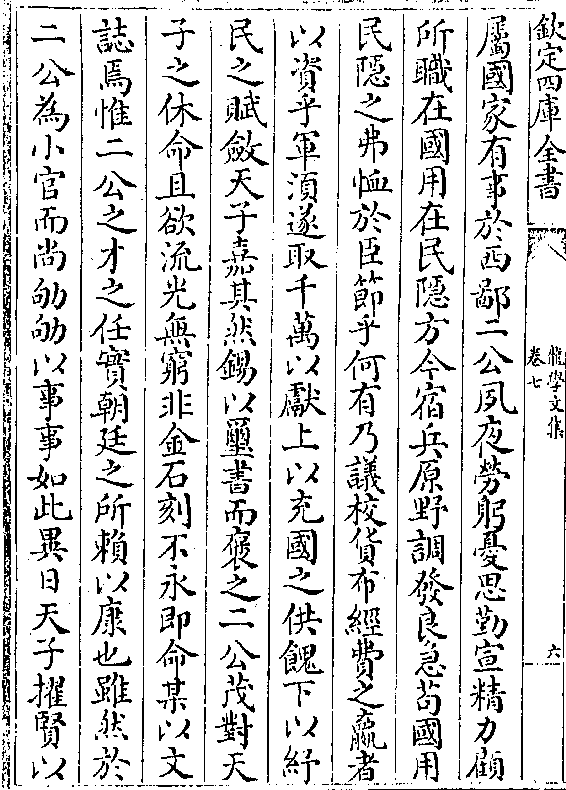 欽定四庫全書
龍學文集
卷七
六
屬國家有事於西鄙二公夙夜勞躬憂思勤宣精力顧
所職在國用在民隠方今宿兵原野調發良急茍國用
民隠之弗恤於臣節乎何有乃議校貨布經費之贏者
以資乎軍須遂取千萬以獻上以充國之供餽下以紓
民之賦斂天子嘉其然錫以璽書而褒之二公茂對天
子之休命且欲流光無窮非金石刻不永即命某以文
誌焉惟二公之才之任實朝廷之所賴以康也雖然於
二公為小官而尚劬劬以事事如此異日天子擢賢以